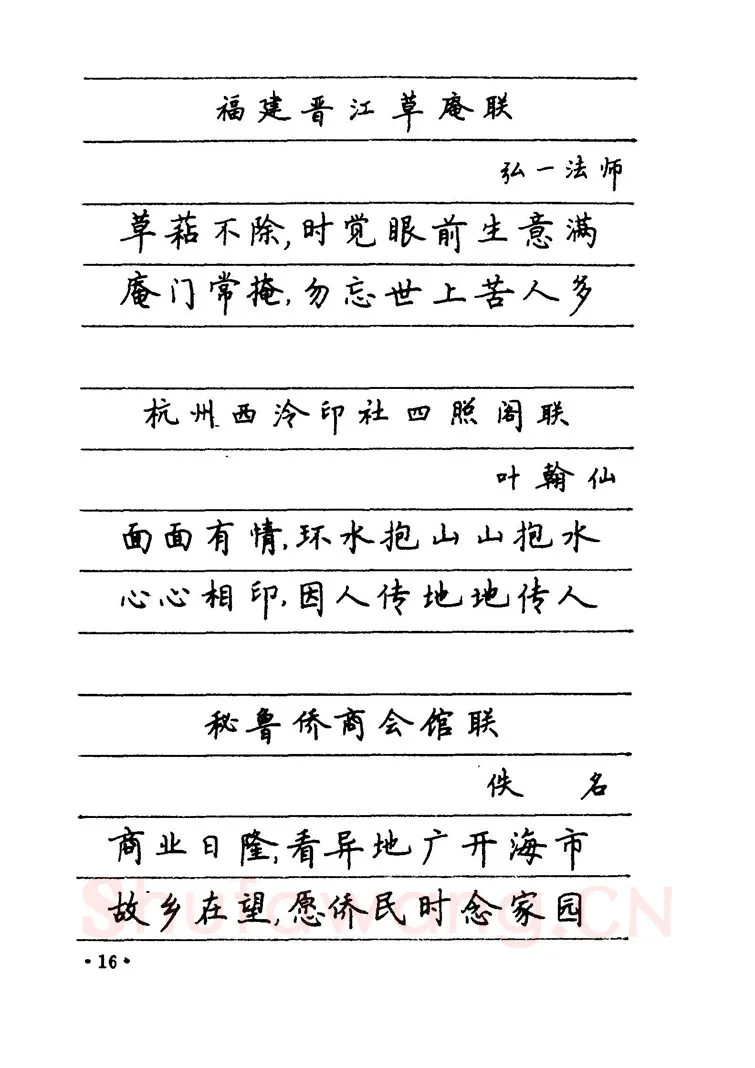 福建晋江草庵联
弘一法师
草萜不除,时觉眼前生意满
庵门常掩,勿忘世上苦人多
杭州西泠印社四照阁联
叶翰仙
面面有情,环水抱山山抱水
心心相印,因人传地地传人
秘鲁侨商会馆联
佚 名
商业日隆,看异地广开海市
故乡在望,愿侨民时念家园
Shufawang.CN
·16·